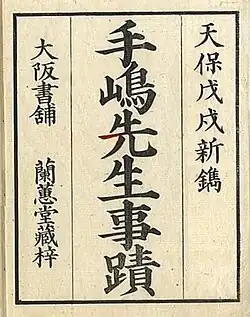 天保戊戌新鐫
手嶋先生事蹟
大阪書舖　蘭蕙堂藏梓